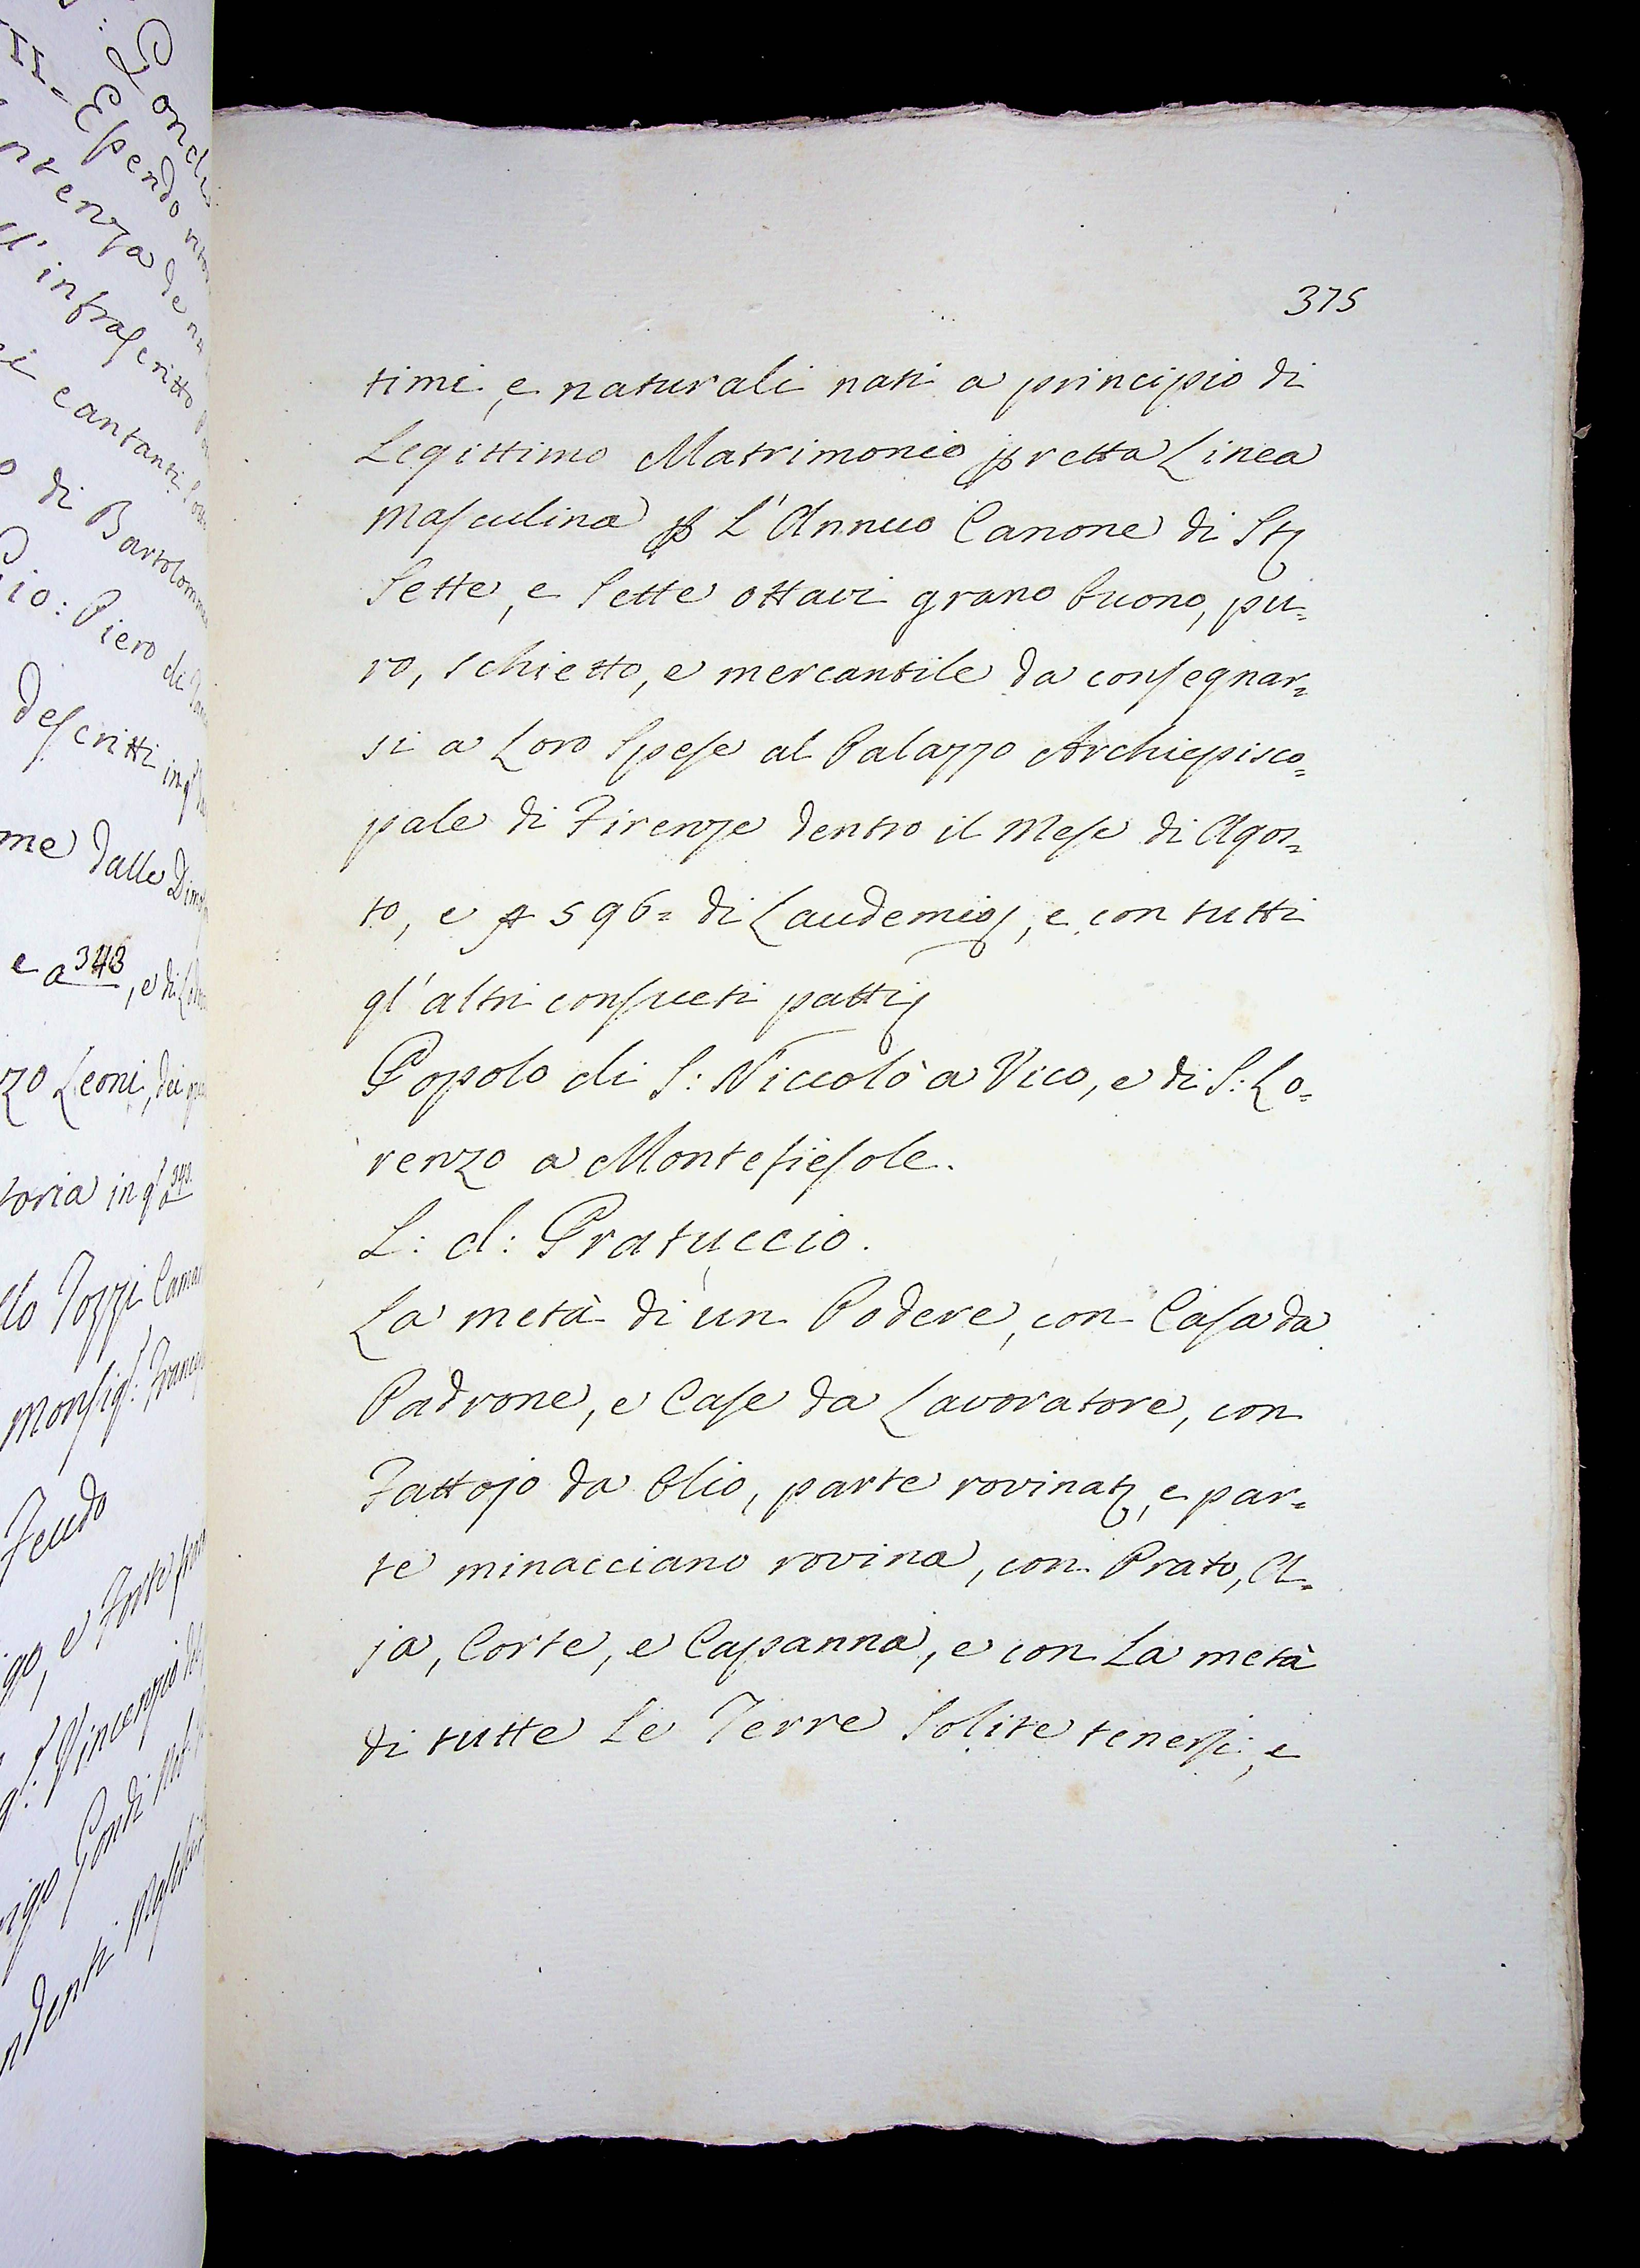 375
timi, e naturali nati a principio di
Legittimo Matrimonio p retta Linea
Masculina p L'Annuo Canone di St
Sette, e Sette ottavi grano buono, pu=
ro, schietto, e mercantile da consegnar=
si a Loro Spese al Palazzo Archiepisco=
pale di Firenze dentro il Mese di Agos=
to, e 596= di Laudemio, e con tutti
gl'altri consueti patti
Popolo di S: Niccolò a Vico, e di S: Lo=
renzo a Montefiesole.
L: d: Pratuccio.
La metà di un Podere, con Casa da
Padrone, e Case da Lavoratore, con
Fattojo da Olio, parte rovinat, e par=
te minacciano rovina, con Prato, A=
ja, Corte, e Capanna, e con La metà
di tutte Le Terre Solite tenersi, e
Gondi
Spendo
infrascritto
cantanti
di Bartolomme
Gio: Piero di
Descritti in
me dalle
e a 343, e di
zo Leoni, dei
toria in q 343
llo Pozzi Cama
Monsig: Frances
Feudo
go, e Forte
Vincenzio
igo Gondi
ndenti Maschi